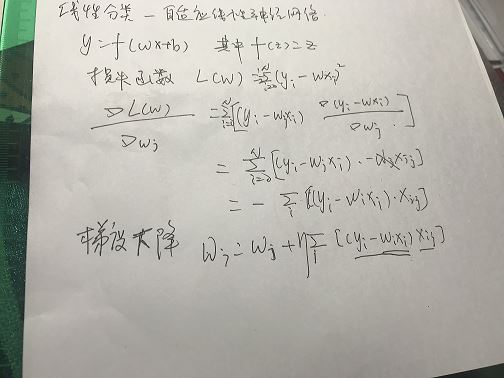 线性分类 — 自适应线性神经网络
y = f(wx+b) 其中 f(z) = z
损失函数 L(w) = Σ_{i=0}^{N} (y_i - wx_i)^2
∇L(w) / ∇w_j = Σ_{i=0}^{N} [(y_i - w_jx_i) ∇(y_i - wx_i) / ∇w_j]
= Σ_{i=0}^{N} [(y_i - w_jx_i) · -x_{ij}]
= - Σ_i [(y_i - w_ix_i) · x_{ij}]
梯度下降 w_j = w_j + η Σ_i [(y_i - w_ix_i) x_{ij}]